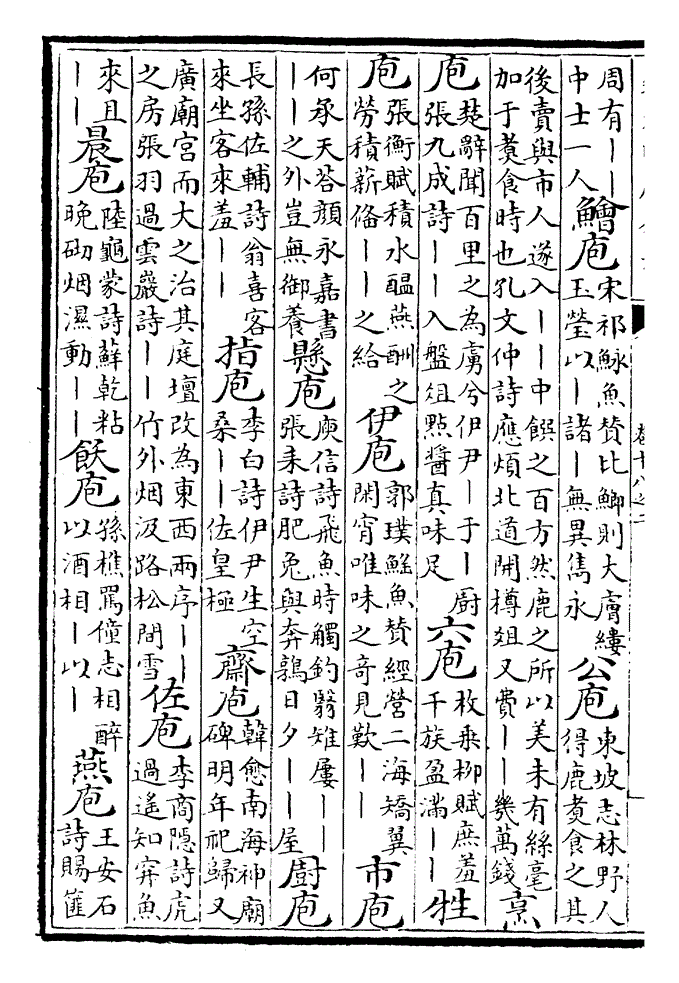 周有丨丨中士一人鱠庖宋祁鮴魚贊比鯽則大膚縷玉瑩以丨諸丨無異雋永公庖東坡志林野人得鹿煑食之其
後賣與市人遂入丨丨中饌之百方然鹿之所以美未有絲毫加于煑食時也孔文仲詩應煩北道開樽俎又費丨丨幾萬錢烹
庖楚辭聞百里之為虜兮伊尹丨于丨廚張九成詩丨丨入盤俎點醬真味足六庖枚乗柳賦庶羞千族盈滿丨丨牲
庖張衡賦積水醞燕酬之勞積薪偹丨丨之給伊庖郭璞鰩魚贊經營二海矯翼閑宵唯味之奇見歎丨丨市庖
何承天荅顔永嘉書丨丨之外豈無御養縣庖庾信詩飛魚時觸釣翳雉屢丨丨張耒詩肥兔與奔鶉日夕丨丨屋廚庖
長孫佐輔詩翁喜客來坐客來羞丨丨指庖李白詩伊尹生空桑丨丨佐皇極齋庖韓愈南海神廟碑明年祀歸又
廣廟宮而大之治其庭壇改為東西兩序丨丨之房張羽過雲巖詩丨丨竹外烟汲路松間雪佐庖李商隱詩虎過遙知穽魚
來且丨丨晨庖陸龜蒙詩蘚乾粘晚砌烟濕動丨丨飫庖孫樵罵僮志相醉以酒相丨以丨燕庖王安石詩賜篚